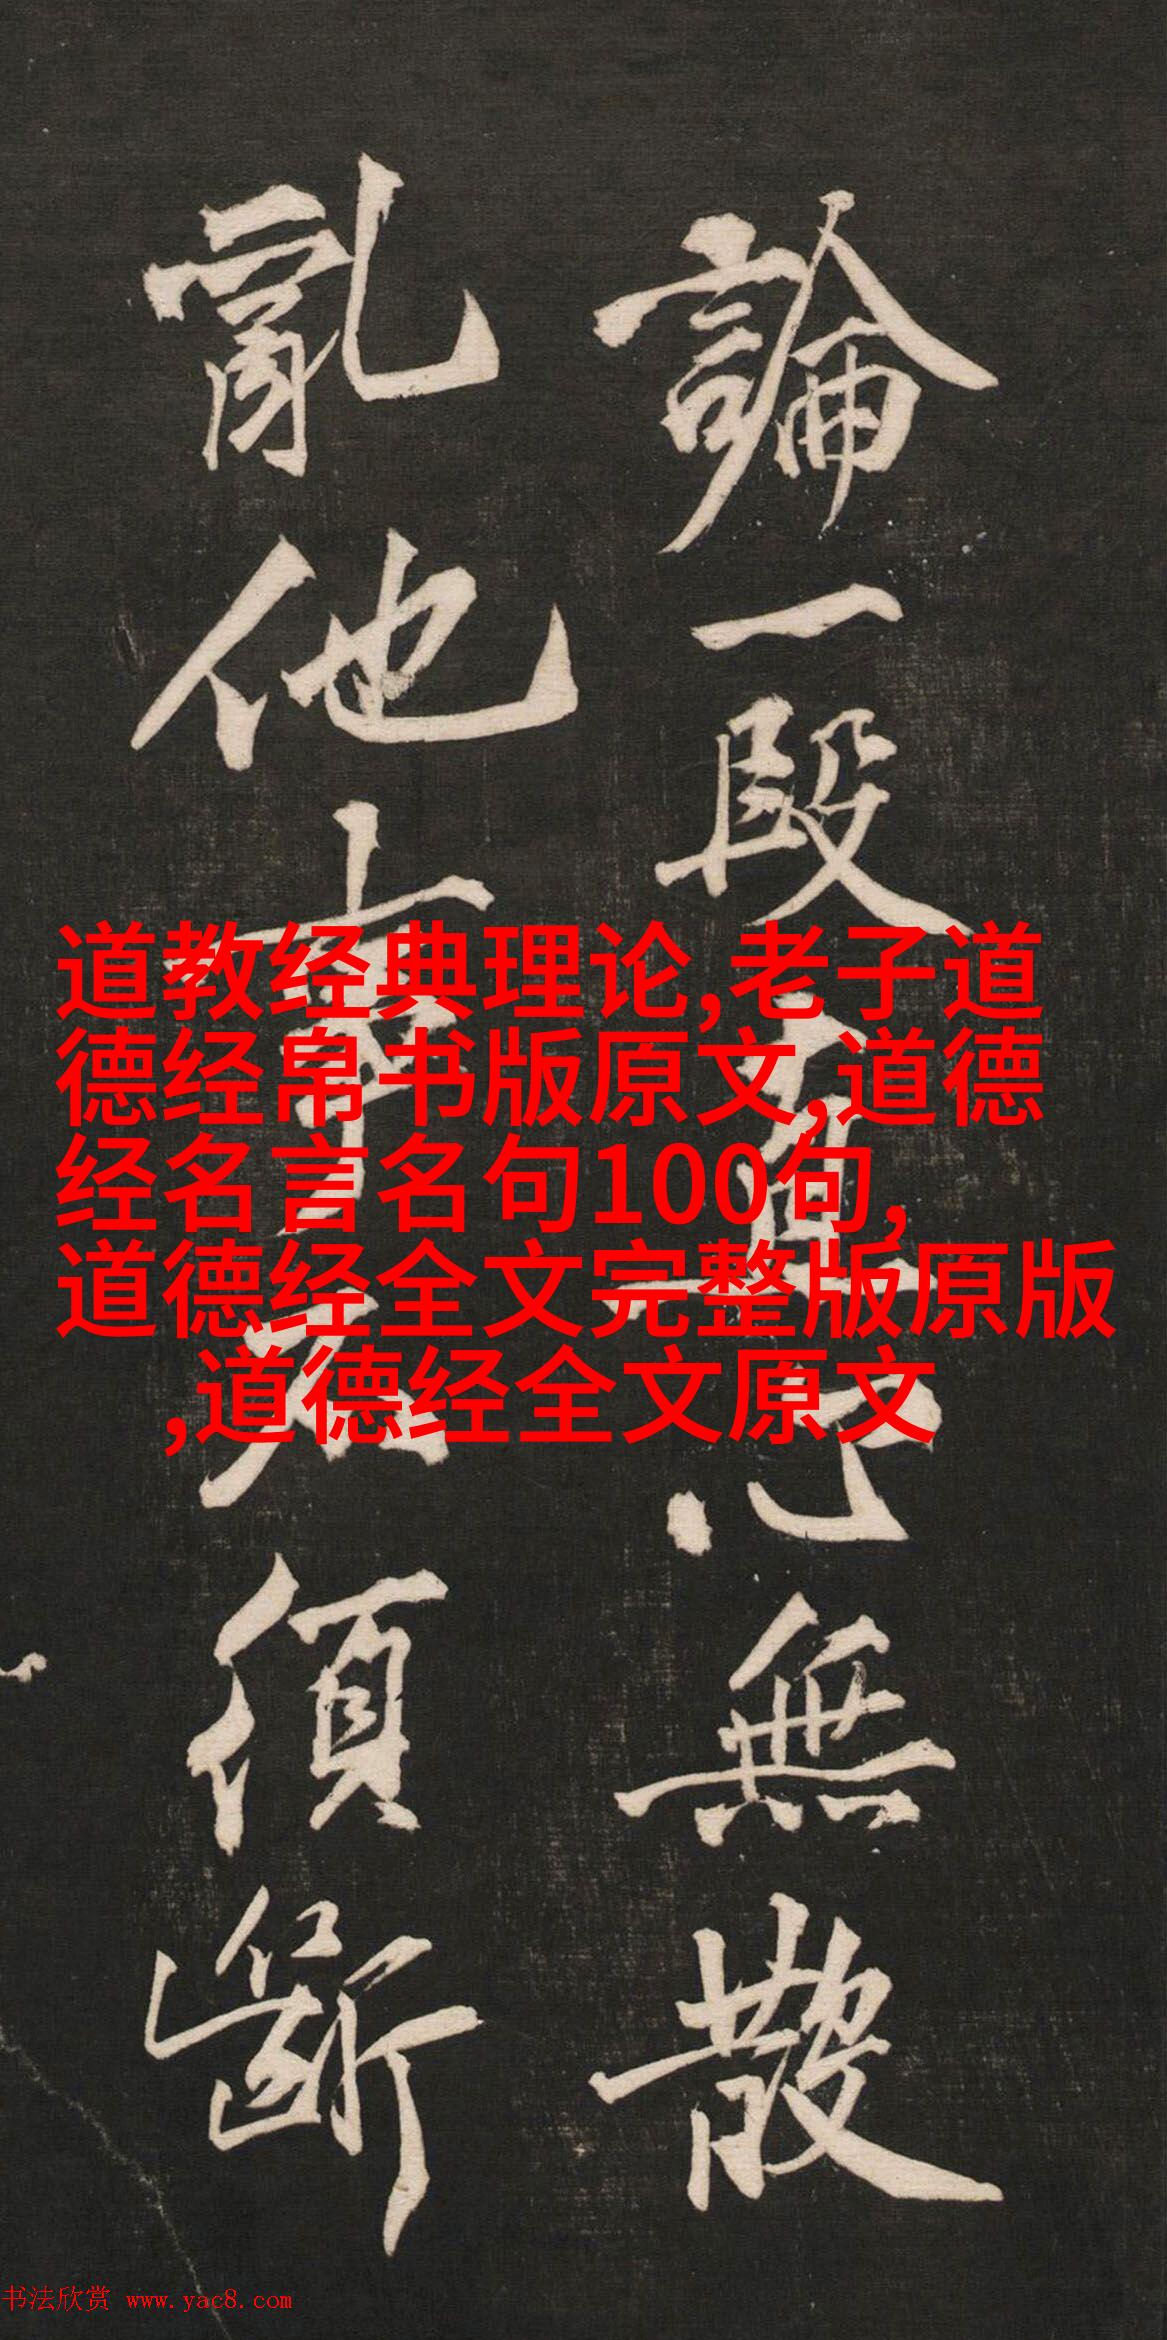 論一段心無散
亂他事不須斷
道教经典理论,老子道
德经帛书版原文,道德
经名言名句100句,
道德经全文完整版原版
,道德经全文原文
书法欣赏 www.yac8.com